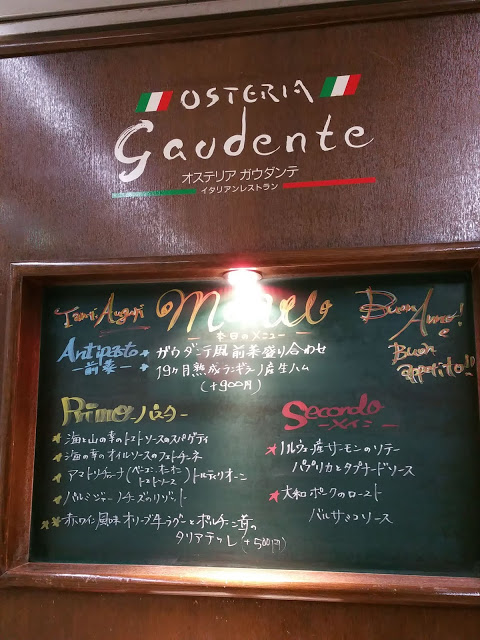 OSTERIA
Gaudente
オステリア ガウダンテ
イタリアンレストラン
Tanti Auguri
Menu
Buon Anno!
e
Buon
appetito!!
本日のメニュー
Antipasto → ガウダンテ風前菜盛り合わせ
-前菜- → 19ヶ月熟成ランギラーノ産生ハム
(+900円)
Primo パスタ-
海と山の幸のトマトソースのスパゲティ
海の幸のオイルソースのフェトチーネ
アマトリチャーナ(ベーコン・オニオン トマトソース)トルティリオーニ
パルミジャーノチーズのリゾット
赤ワイン風味 オリーブ牛ラグーとポルチーニ茸の
タリアテッレ(+500円)
Secondo
-メイン-
ノルウェー産サーモンのソテー
パプリカとタプナードソース
大和ポークのロースト
バルサミコソース